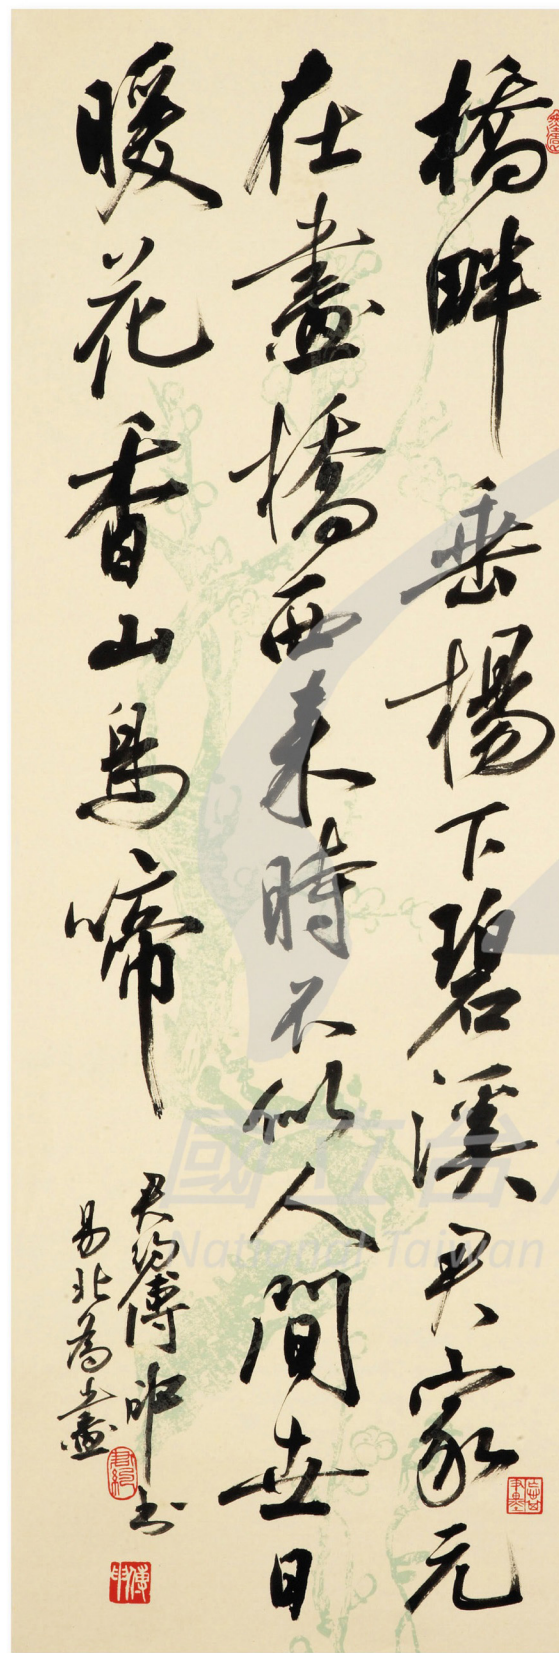 橋畔垂楊下碧溪君家元
在畫橋西來時不似人間世日
暖花香山鳥啼
君約傅申书
易北為畫
君約
傅申
國立台
National Taiwan